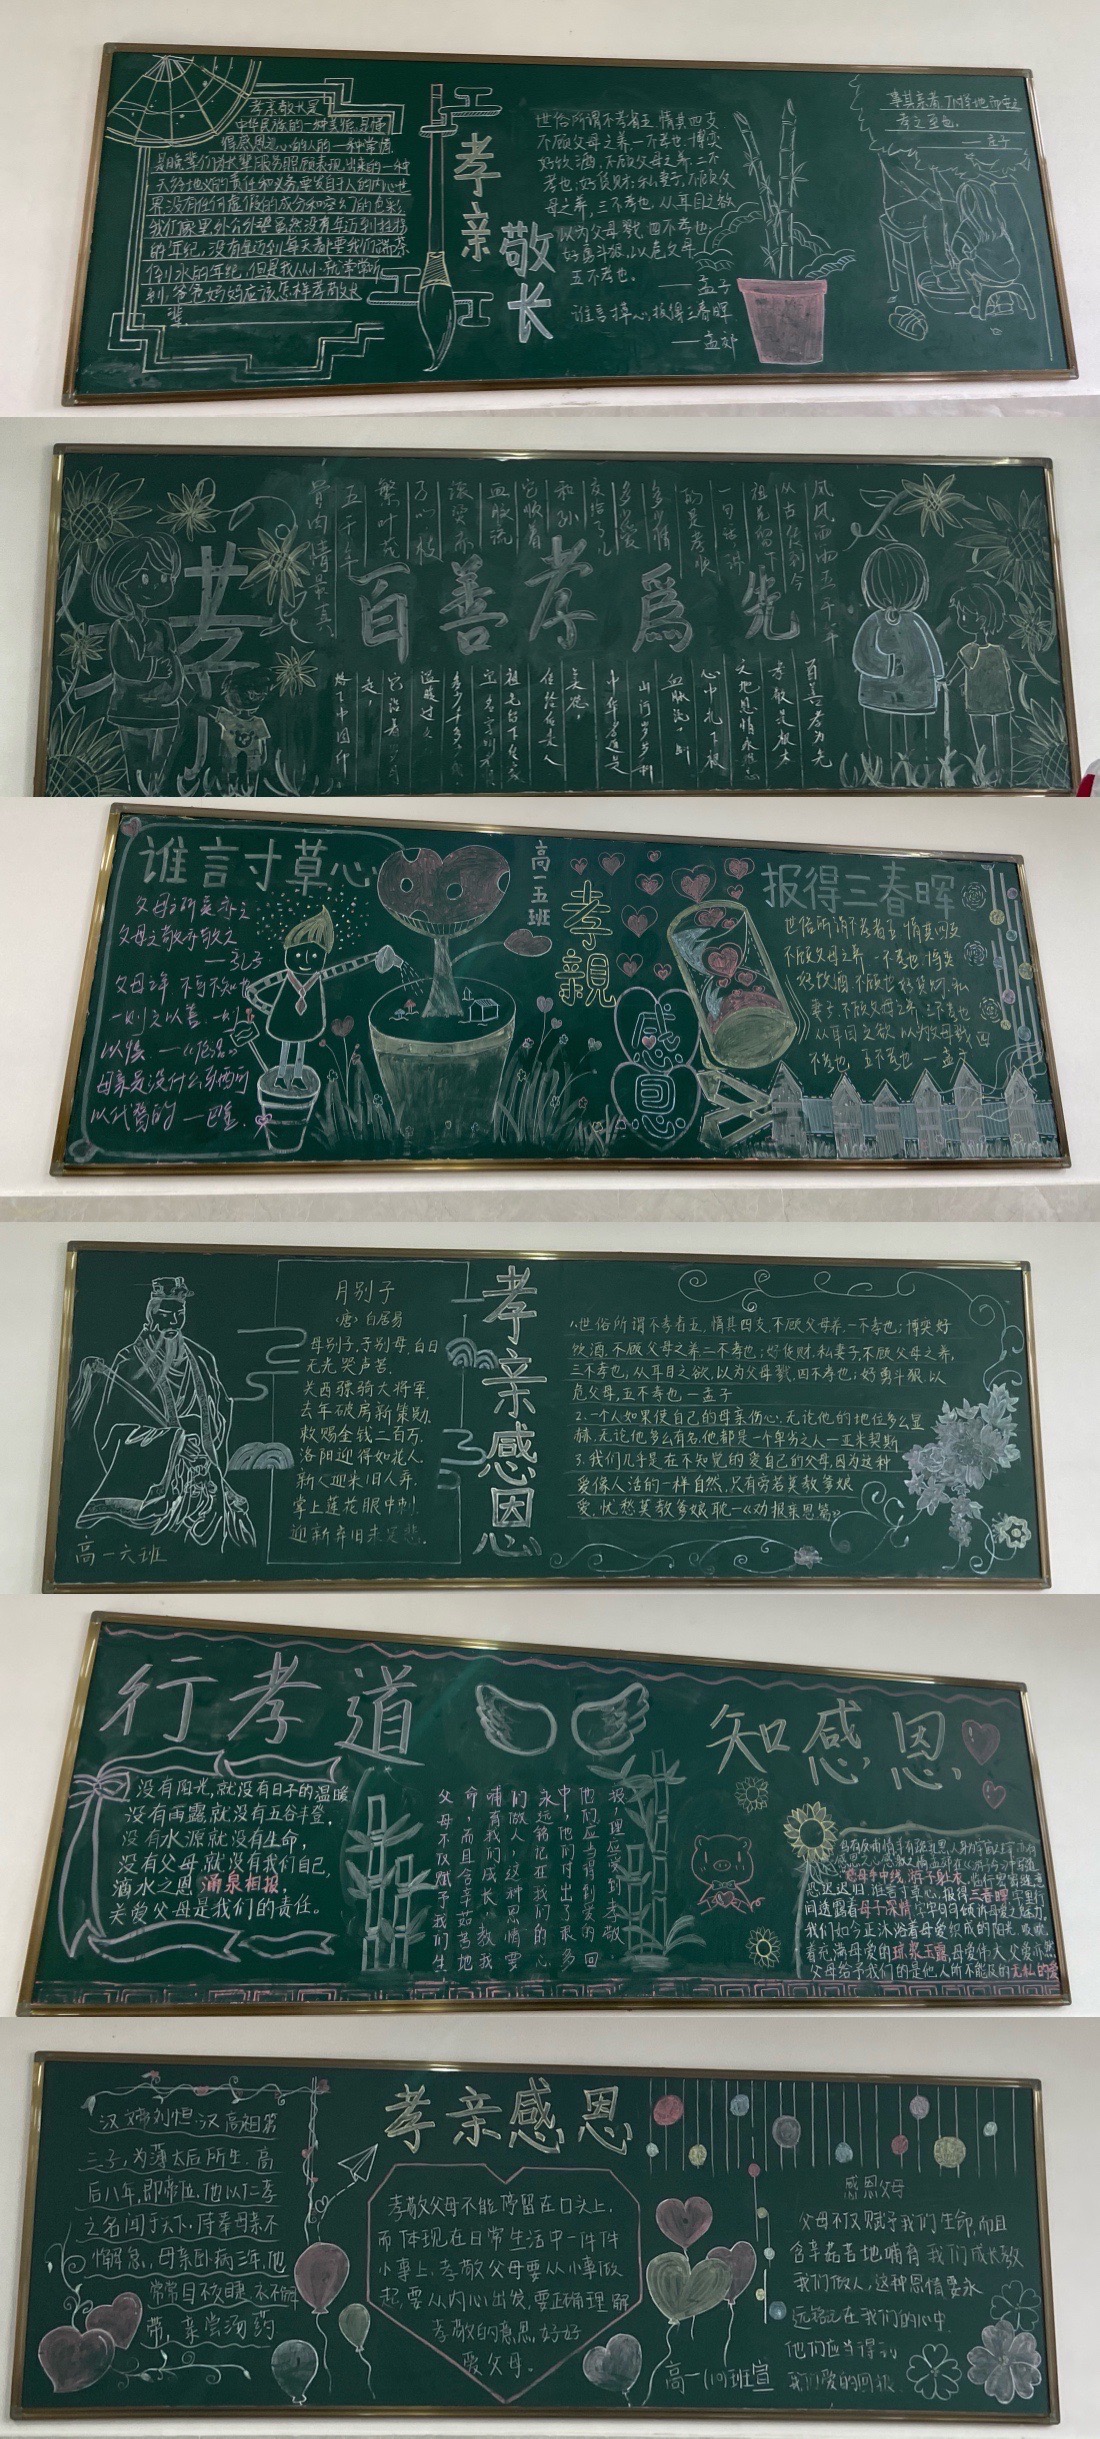 孝亲敬长是
中华民族的一种美德,是懂
得感恩之心的人的一种常情
是晚辈们对长辈服务照顾表现出来的一种
天经地义的责任和义务,要发自于人的内心世
界没有任何虚假的成分和空幻的色彩
我们家里外公外婆虽然没有年迈到拄拐
的年纪,没有年迈到每天都要我们端茶
倒水的年纪,但是我从小就常常听
到,爸爸妈妈应该怎样孝敬长
辈.
孝亲
敬长
世俗所谓不孝者五,惰其四支
不顾父母之养,一不孝也;博奕
好饮酒,不顾父母之养,二不
孝也;好货财,私妻子,不顾父
母之养,三不孝也;从耳目之欲
以为父母戮,四不孝也;
好勇斗狠,以危父母
五不孝也。
——孟子
谁言寸草心,报得三春晖
——孟郊
事其亲者,不择地而安之
孝之至也。
——庄子
孝
百善孝為先
风风雨雨五千年
从古传到今
祖先留下
一句话讲
的是孝顺
多少情
多少爱
交给了儿
和孙
它顺着
血脉流
滚烫
子的枝
繁叶茂
五千年
骨肉情最真
百善孝为先
孝敬是根本
天地恩情
心中扎下根
血脉
山河岁岁
中华孝道是
美德,
任
祖先留下
温暖过
它
走,
谁言寸草心
父母之所爱亦爱之
父母之敬亦敬之
——孔子
父母之年,不可不知也
一则以喜,一则
以惧 —《论语》
母亲是没什么东西可
以代替的 —巴金.
高一五班
孝親
感恩
报得三春晖
世俗所谓不孝者五 惰其四支
不顾父母之养 一不孝也 博奕
好饮酒 不顾也 好货财,私
妻子,不顾父母之养 三不孝也
从耳目之欲 以为父母戮 四
不孝也 五不孝也 —孟子
高一六班
月别子
(唐) 白居易
母别子,子别母,白日
无光哭声苦.
关西骠骑大将军,
去年破虏新策勋.
敕赐金钱二百万,
洛阳迎得如花人.
新人迎来旧人弃,
掌上莲花眼中刺.
迎新弃旧未足悲.
孝亲感恩
1.世俗所谓不孝者五,惰其四支,不顾父母养,一不孝也;博奕好
饮酒,不顾父母之养二不孝也;好货财,私妻子,不顾父母之养,
三不孝也,从耳目之欲,以为父母戮,四不孝也;好勇斗狠,以
危父母,五不孝也.—孟子
2.一个人如果使自己的母亲伤心,无论他的地位多么显
赫,无论他多么有名,他都是一个卑劣之人—亚米契斯
3.我们几乎是在不知觉的爱自己的父母,因为这种
爱像人活的一样自然,只有旁若莫教爹娘
爱,忧愁莫教爹娘耽—《劝报亲恩篇》
行孝道
没有阳光,就没有日子的温暖
没有雨露,就没有五谷丰登,
没有水源就没有生命,
没有父母,就没有我们自己,
滴水之恩 涌泉相报,
关爱父母是我们的责任。
父母不仅赋予我们生
命,而且含辛茹苦地
哺育我们成长,教我
们做人,这种恩情要
永远铭记在我们的心
中,他们付出了很多
他们应当得到爱的回
报,理应受到孝敬,
知感恩
慈母手中线,游子身上衣,临行密密缝,意
恐迟迟归.谁言寸草心,报得三春晖,字里行
间透露着母子深情,字中句句倾诉母爱之魅力,
我们如今正沐浴着母爱织成的阳光,吸吮
着充满母爱的琼浆玉露,母爱伟大,父爱亦然
父母给予我们的是他人所不能及的无私的爱
孝亲感恩
汉文帝刘恒,汉高祖第
三子,为薄太后所生.高
后八年,即帝位,他以仁孝
之名闻于天下,侍奉母亲不
怀懈怠,母亲卧病三年,他
常常目不交睫,衣不解
带,亲尝汤药.
孝敬父母不能停留在口头上,
而体现在日常生活中一件件
小事上,孝敬父母要从小事做
起,要从内心出发,要正确理解
孝敬的意思,好好
爱父母.
高一(10)班宣
感恩父母
父母不仅赋予我们生命,而且
含辛茹苦地哺育我们成长,教
我们做人,这种恩情要永
远铭记在我们的心中.
他们应当得到
我们爱的回报.